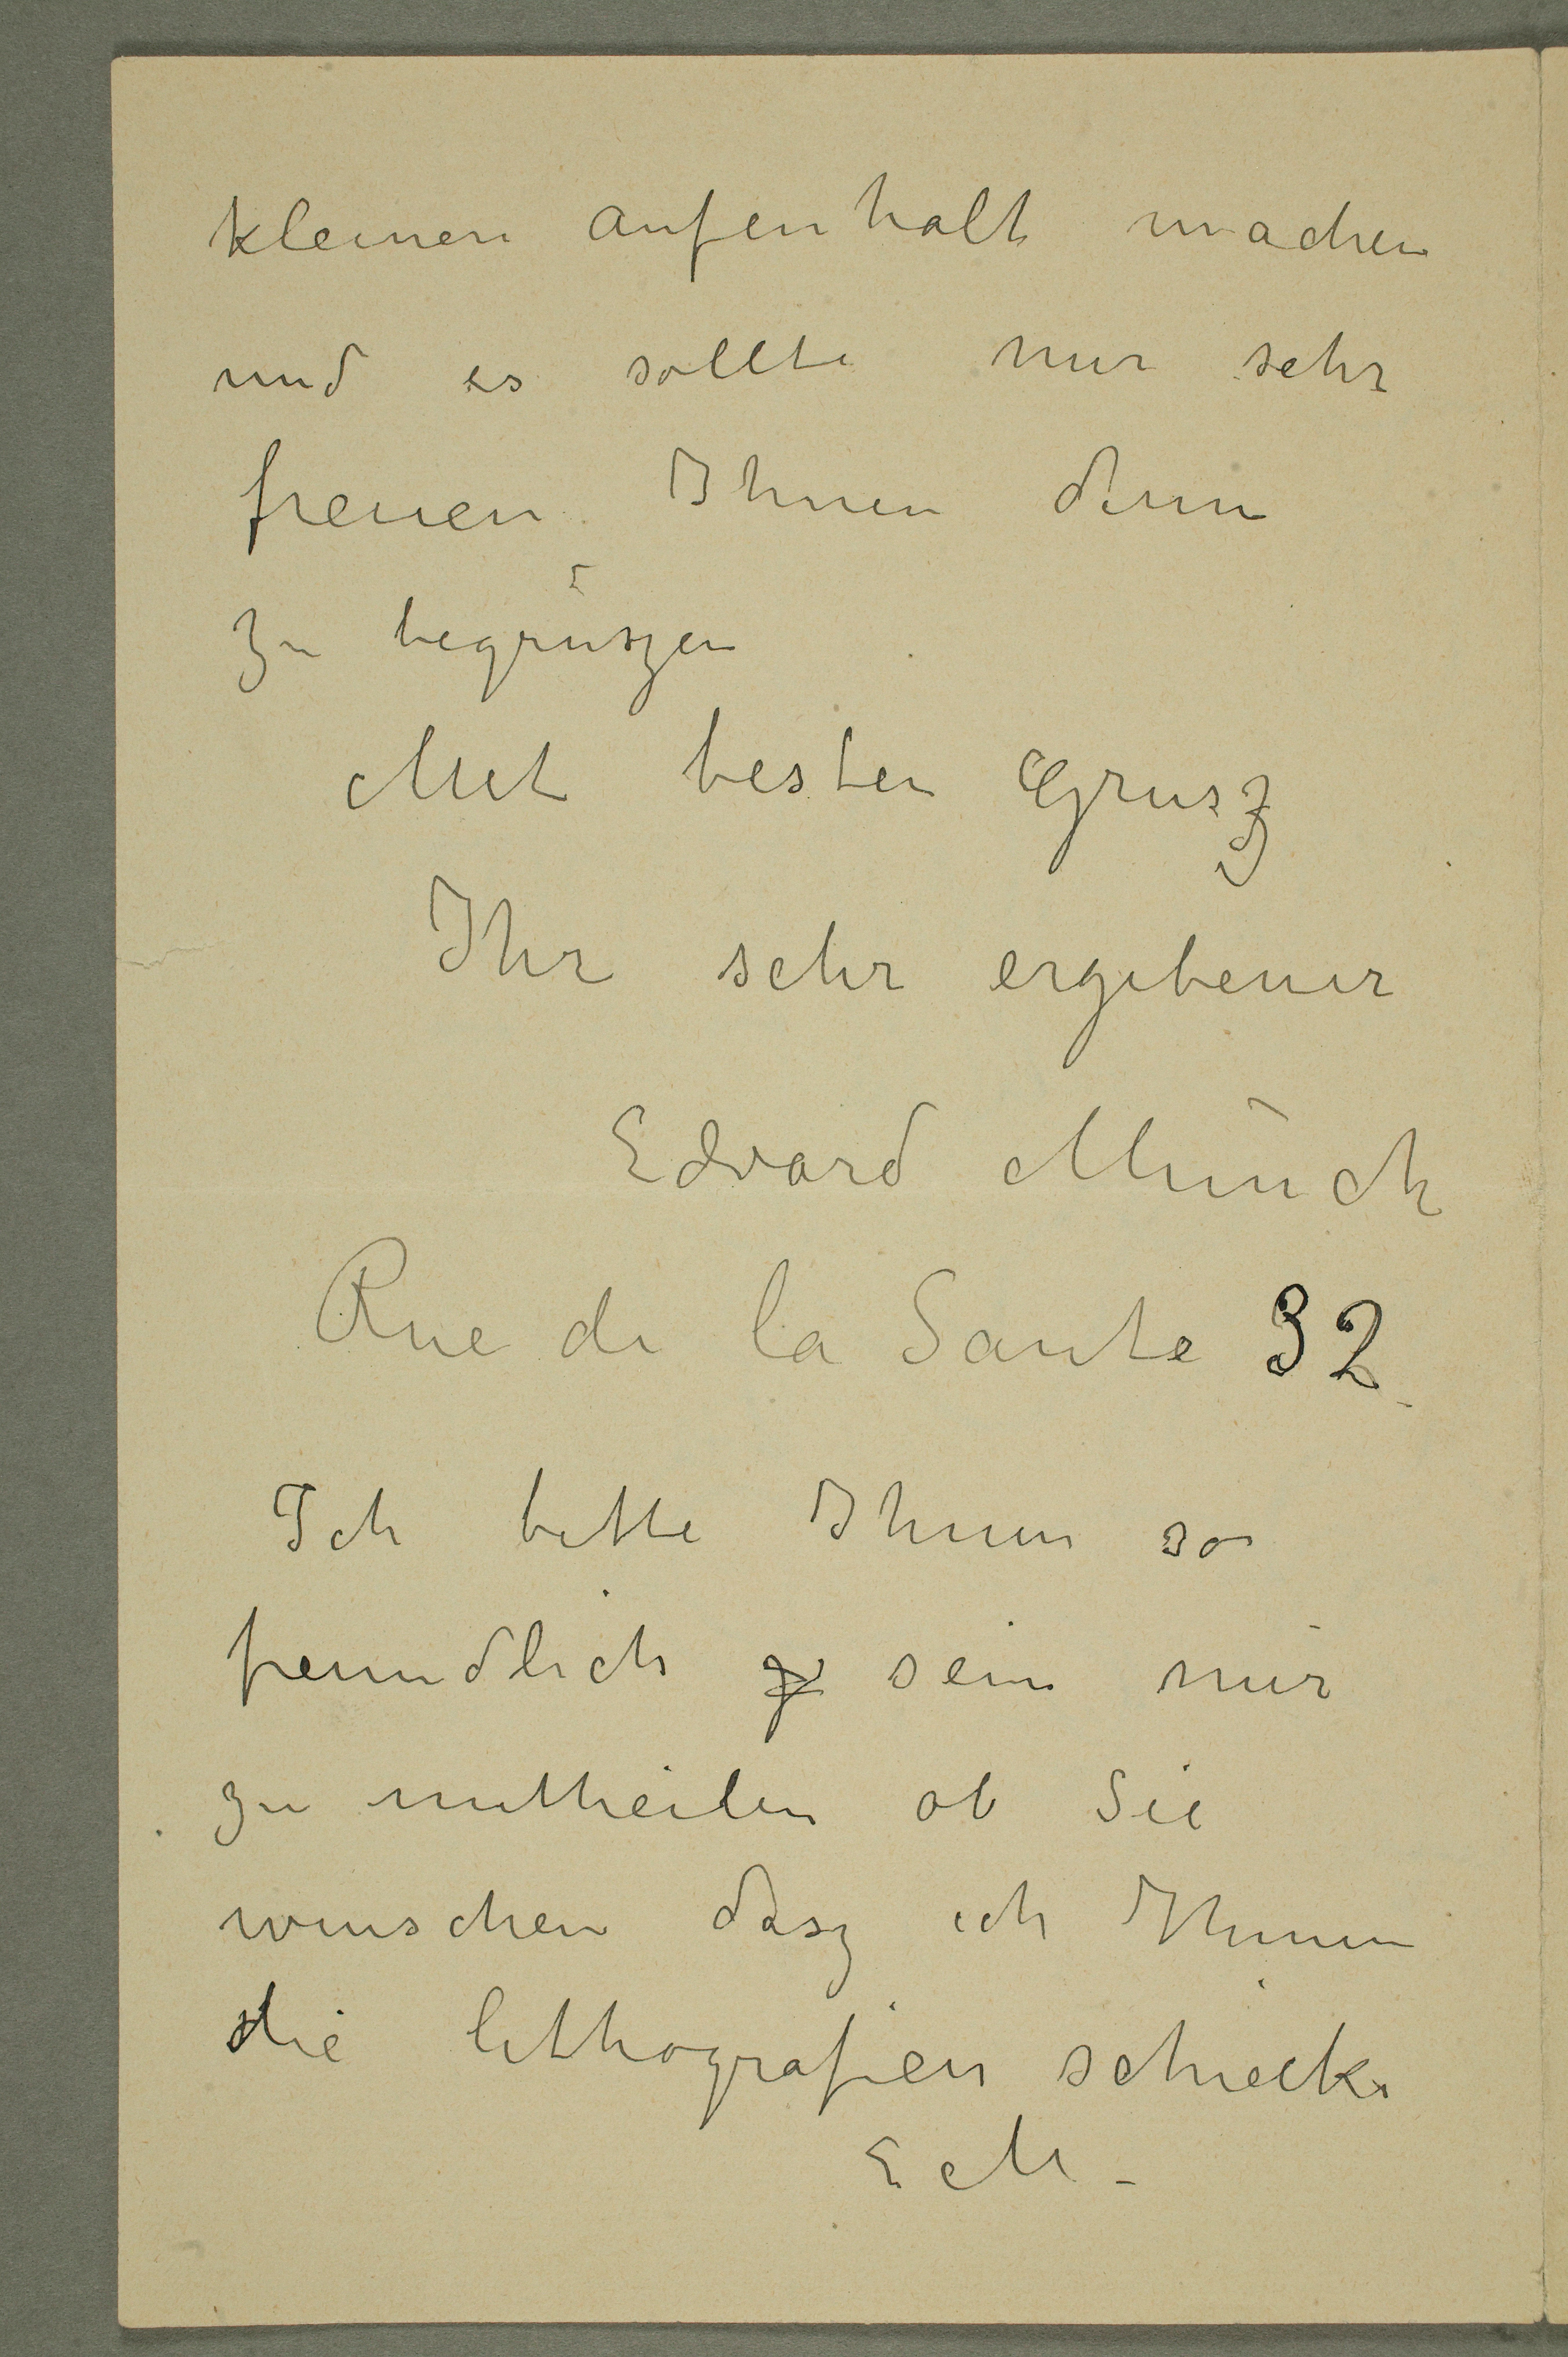 kleinen aufenhalt machen
und es sollte mir sehr
freuen Ihnen denn
zu begrüszen
Mit besten Grusz
Ihr sehr ergebener
Edvard Munch
Rue de la Sante 32
Ich bitte Ihnen so
freundlich z sein mir
zu mittheilen ob Sie
wunschen dasz ich Ihnen
die lithografien schicke
EM.